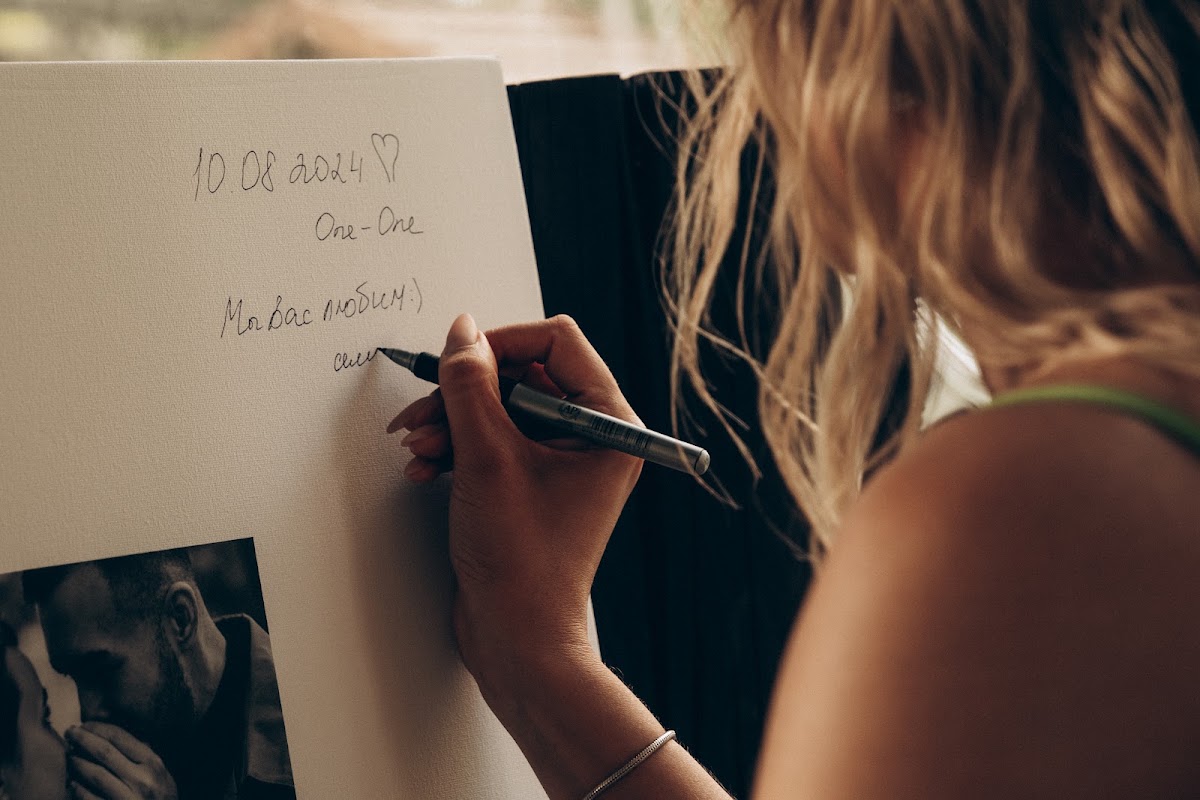 10.08 2024 ♡
One-One
Мы вас любим:)